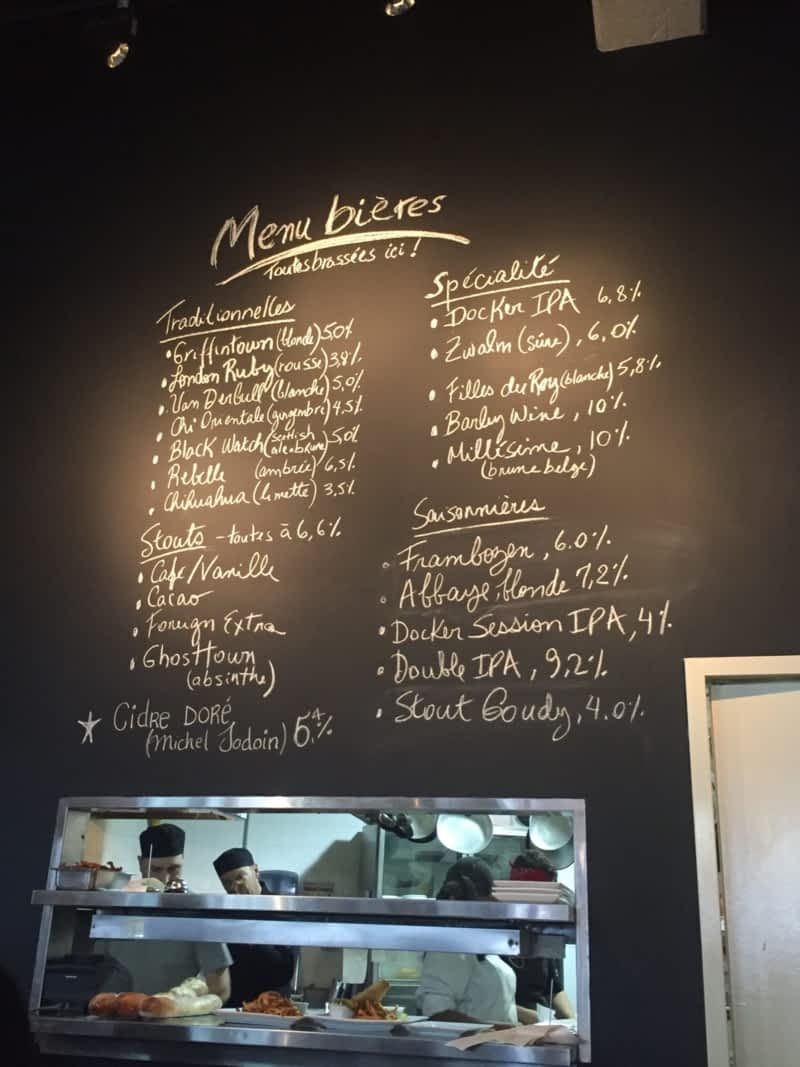 Menu bières
Toutes brassées ici !
Traditionnelles
• Griffintown (blonde) 5,0%
• London Ruby (rousse) 3,8%
• Van Derbull (blanche) 5,0%
• Chi Orientale (gingembre) 4,5%
• Black Watch (scottish ale brune) 5,0%
• Rebelle (ambrée) 6,5%
• Chihuahua (limette) 3,5%
Stouts - toutes à 6,6%
• Café/Vanille
• Cacao
• Foreign Extra
• Ghosttown
(absinthe)
☆ Cidre DORÉ
(Michel Jodoin) 5,4%
Spécialité
• Docker IPA 6,8%
• Zwalm (sûre), 6,0%
• Filles du Roy (blanche) 5,8%
• Barley Wine, 10%
• Millésime, 10%
(brune belge)
Saisonnières
• Frambozen, 6.0%
• Abbaye, blonde 7,2%
• Docker Session IPA, 4%
• Double IPA, 9,2%
• Stout Goudy, 4.0%